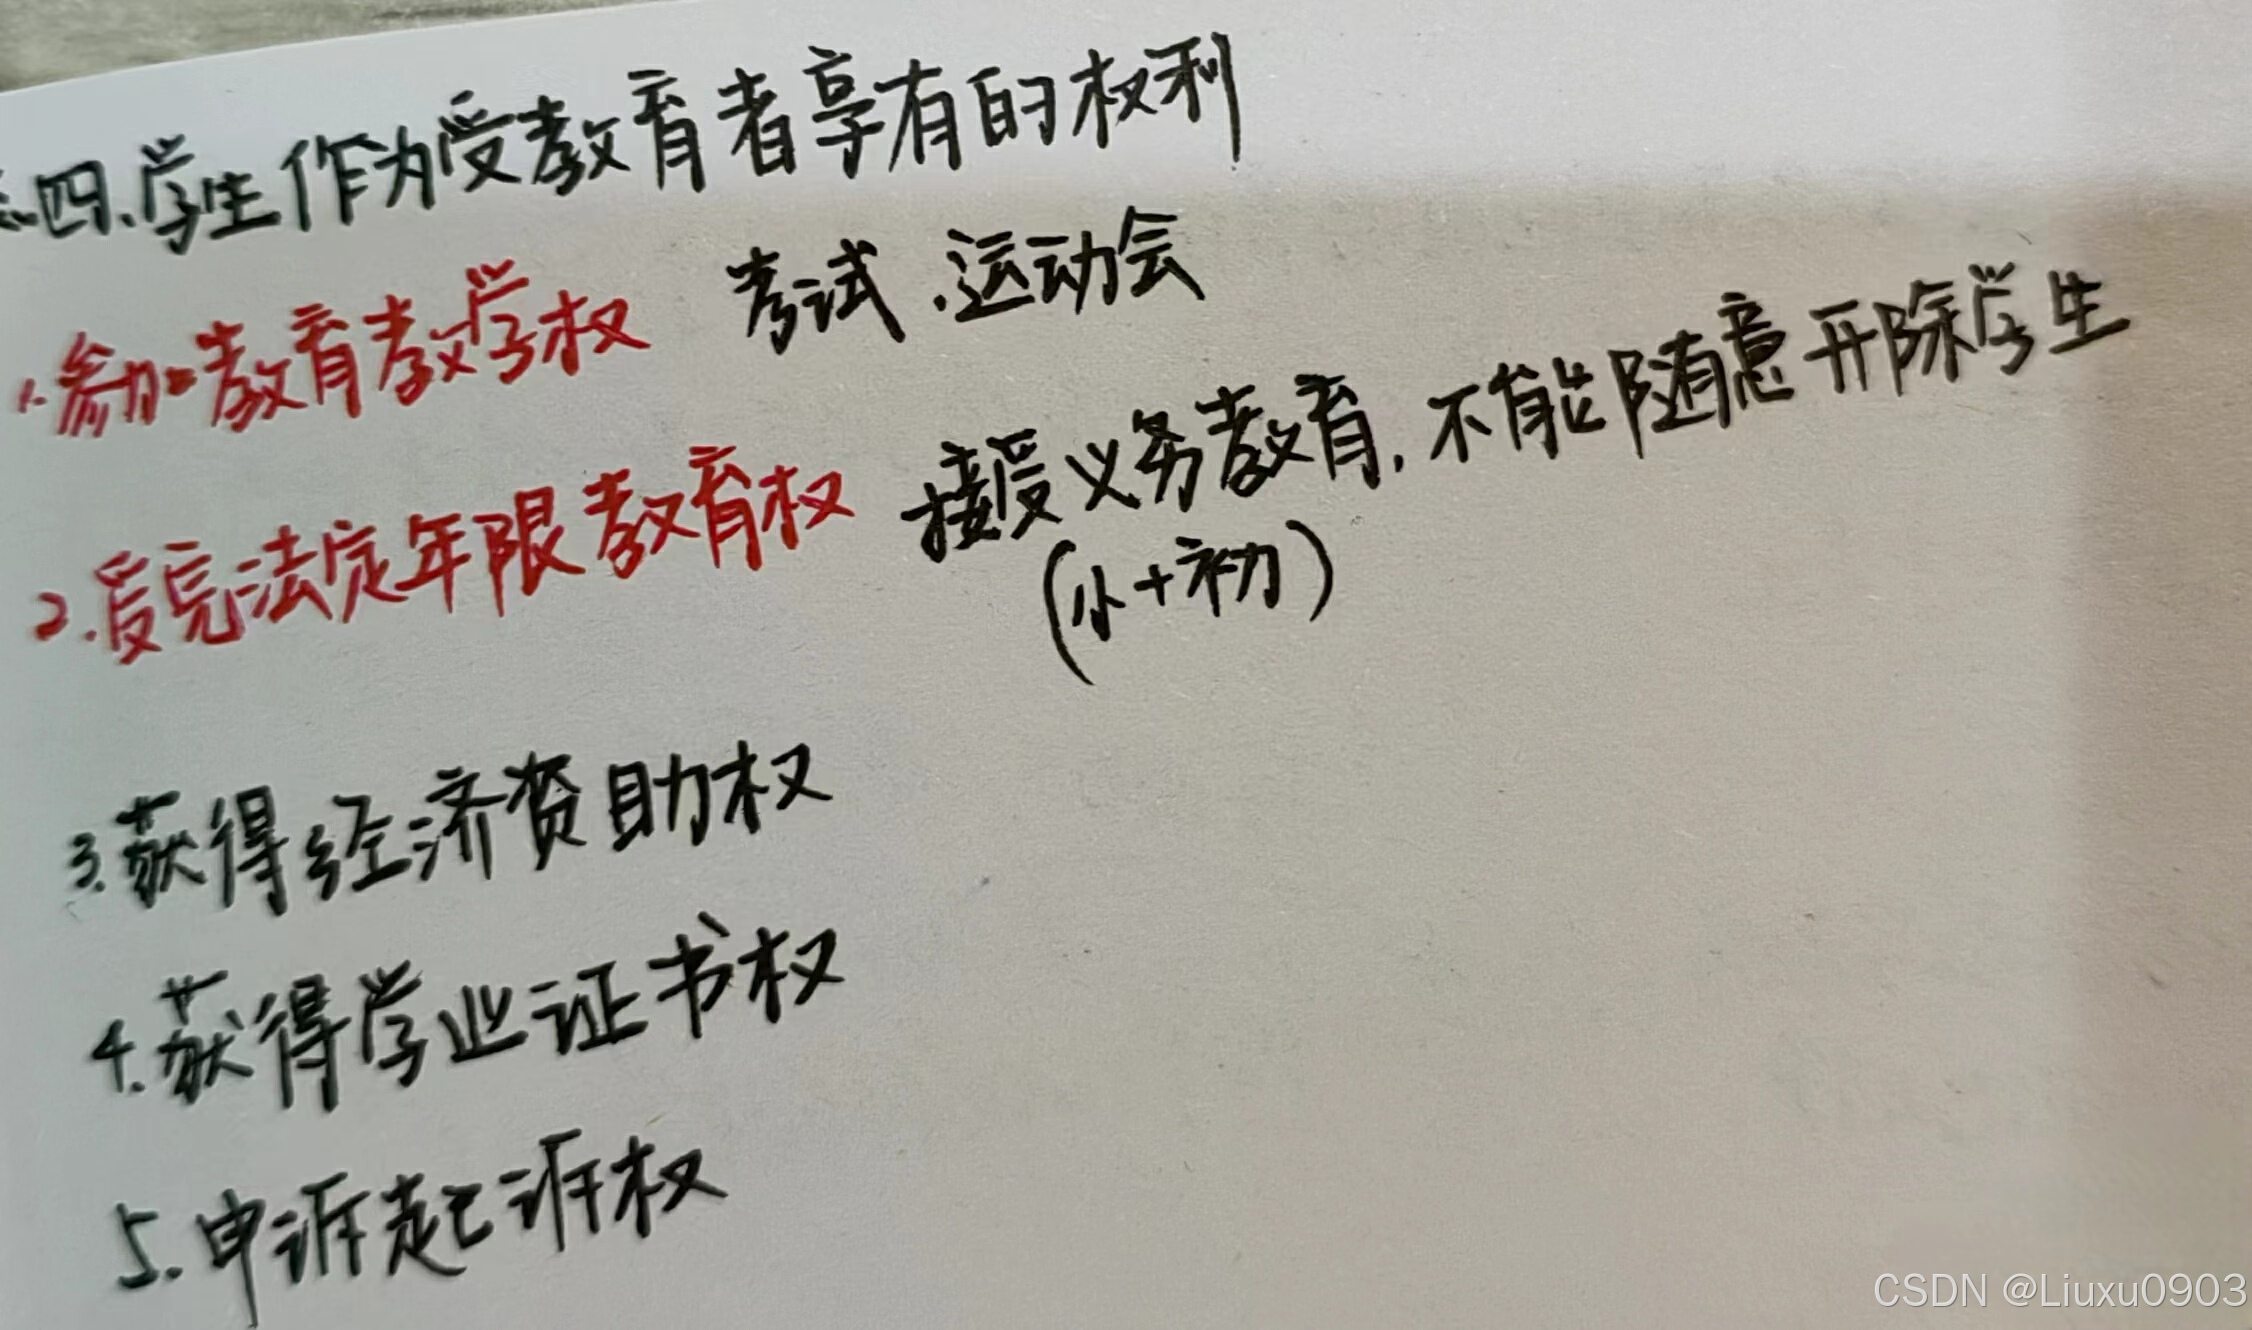 四、学生作为受教育者享有的权利
1.参加教育教学权 考试、运动会
2.受完法定年限教育权 接受义务教育,不能随意开除学生
(小+初)
3.获得经济资助权
4.获得学业证书权
5.申诉起诉权
CSDN @Liuxu0903